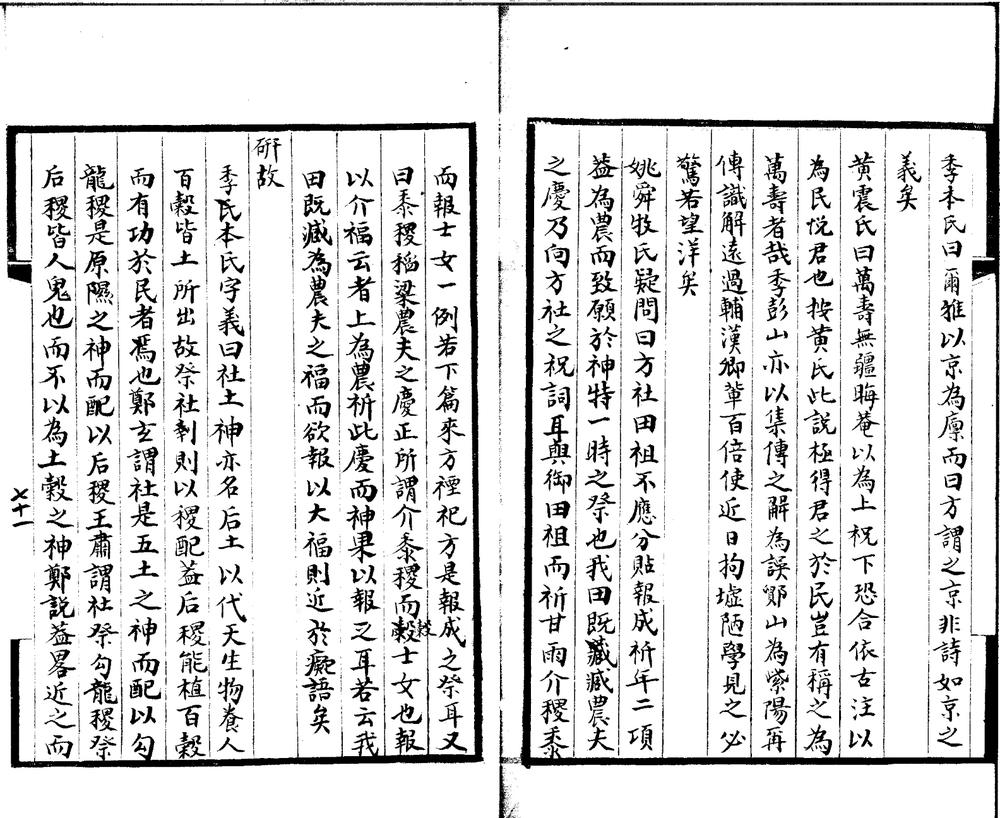 季本氏曰爾雅以京為廪而曰方謂之京非詩如京之
義矣
黄震氏曰萬壽無疆晦菴以為上祝下恐合依古注以
為民悦君也按黄氏此説極得君之於民豈有稱之為
萬壽者哉季彭山亦以集傳之解為誤鄮山為紫陽再
傳識解遠過輔漢卿輩百倍使近日拘墟陋學見之必
驚若望洋矣
姚舜牧氏疑問曰方社田祖不應分貼報成祈年二項
葢為農而致願於神特一時之祭也我田既臧臧農夫
之慶乃向方社之祝詞耳與御田祖而祈甘雨介稷黍
而報士女一例若下篇來方禋祀方是報成之祭耳又
曰黍稷稻粱農夫之慶正所謂介黍稷而穀士女也報
以介福云者上為農祈此慶而神果以報之耳若云我
田既臧為農夫之福而欲報以大福則近於癡語矣
研故
季氏本氏字義曰社土神亦名后土以代天生物養人
百穀皆土所出故祭社則以稷配葢后稷能植百穀
而有功於民者焉也鄭玄謂社是五土之神而配以勾
龍稷是原隰之神而配以后稷王肅謂社祭勾龍稷祭
后稷皆人鬼也而不以為土穀之神鄭説葢畧近之而
七十一